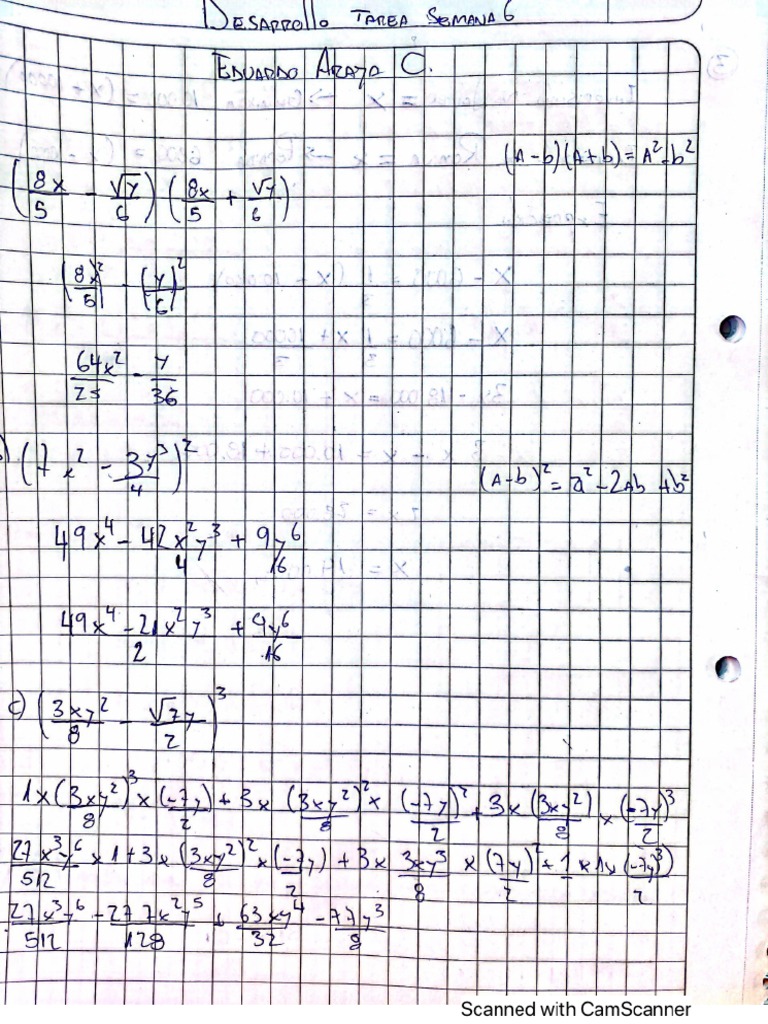 DESARROLLO TAREA SEMANA 6
EDUARDO ARAYA C.
(A-b)(A+b) = A²-b²
(8x/5 - √y/6) (8x/5 + √y/6)
(8x/5)² - (y/6)²
64x²/25 - y/36
(7x² - 3y³/4)²
(A-b)² = a² - 2Ab + b²
49x⁴ - 42x²y³/4 + 9y⁶/16
49x⁴ - 21x²y³/2 + 9y⁶/16
c) (3xy²/8 - √7y/2)³
1x(3xy²/8)³ x (-7y/2) + 3x (3xy²/8)² x (-7y/2)² + 3x(3xy²/8) x (-7y/2)³
27x³y⁶/512 x 1 + 3x(3xy²/8)² x (-7y/2) + 3x 3xy³/8 x (7y/2)² + 1 x 1x (-7y³/2)
27x³y⁶/512 - 27 7x²y⁵/128 + 63xy⁴/32 - 77y³/8
Scanned with CamScanner